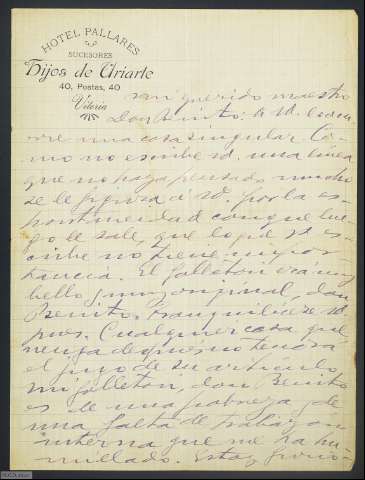 HOTEL PALLARES
SUCESORES
Hijos de Uriarte
40, Postas, 40
Vitoria
querido maestro
Don Benito: A Vd. le ocu-
rre una cosa singular. Co-
mo no escribe Vd. una línea
que no haya pensado mucho
se le figura a Vd. por la es-
pontaneidad con que lue-
go le sale, que lo que Vd. es-
cribe no tiene impor-
tancia. El folletón era muy
bello y muy original, don
Benito. Tranquilícese Vd.
pues. Cualquier cosa que
venga después no tendrá
el jugo de su artículo.
Mi folletón, don Benito
es de una pobreza y de
una falta de trabazón
interna que me ha hu-
millado. Estoy